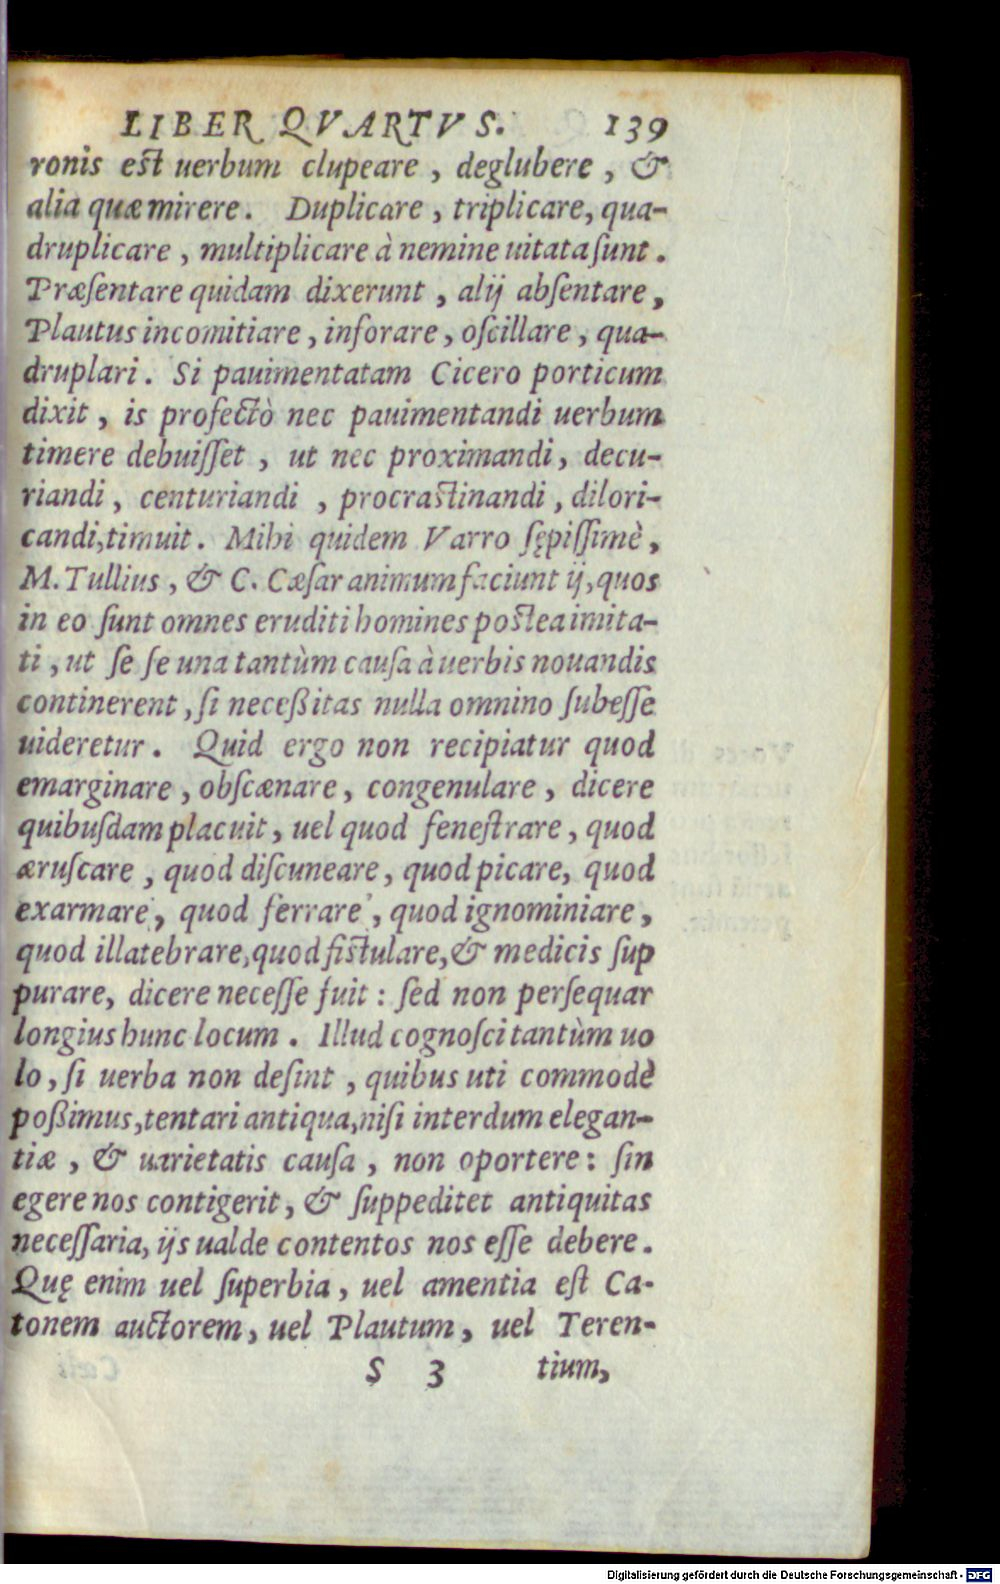 LIBER QVARTVS. 139
ronis est uerbum clupeare, deglubere, &
alia quæ mirere. Duplicare, triplicare, qua-
druplicare, multiplicare à nemine uitata ſunt.
Præſentare quidam dixerunt, alij abſentare,
Plautus incomitiare, inforare, oſcillare, qua-
druplari. Si pauimentatam Cicero porticum
dixit, is profectò nec pauimentandi uerbum
timere debuiſſet, ut nec proximandi, decu-
riandi, centuriandi, procraſtinandi, dilori-
candi, timuit. Mihi quidem Varro ſępiſſimè,
M. Tullius, & C. Cæſar animum faciunt ij, quos
in eo ſunt omnes eruditi homines poſtea imita-
ti, ut ſe ſe una tantùm cauſa à uerbis nouandis
continerent, ſi neceßitas nulla omnino ſubeſſe
uideretur. Quid ergo non recipiatur quod
emarginare, obſcænare, congenulare, dicere
quibuſdam placuit, uel quod feneſtrare, quod
æruſcare, quod diſcuneare, quod picare, quod
exarmare, quod ferrare, quod ignominiare,
quod illatebrare, quod fiſtulare, & medicis ſup
purare, dicere neceſſe fuit: ſed non perſequar
longius hunc locum. Illud cognoſci tantùm uo
lo, ſi uerba non deſint, quibus uti commodè
poßimus, tentari antiqua, niſi interdum elegan-
tiæ, & uarietatis cauſa, non oportere: ſin
egere nos contigerit, & ſuppeditet antiquitas
neceſſaria, ijs ualde contentos nos eſſe debere.
Quę enim uel ſuperbia, uel amentia eſt Ca-
tonem auctorem, uel Plautum, uel Teren-
S 3 tium,
Digitalisierung gefördert durch die Deutsche Forschungsgemeinschaft - DFG